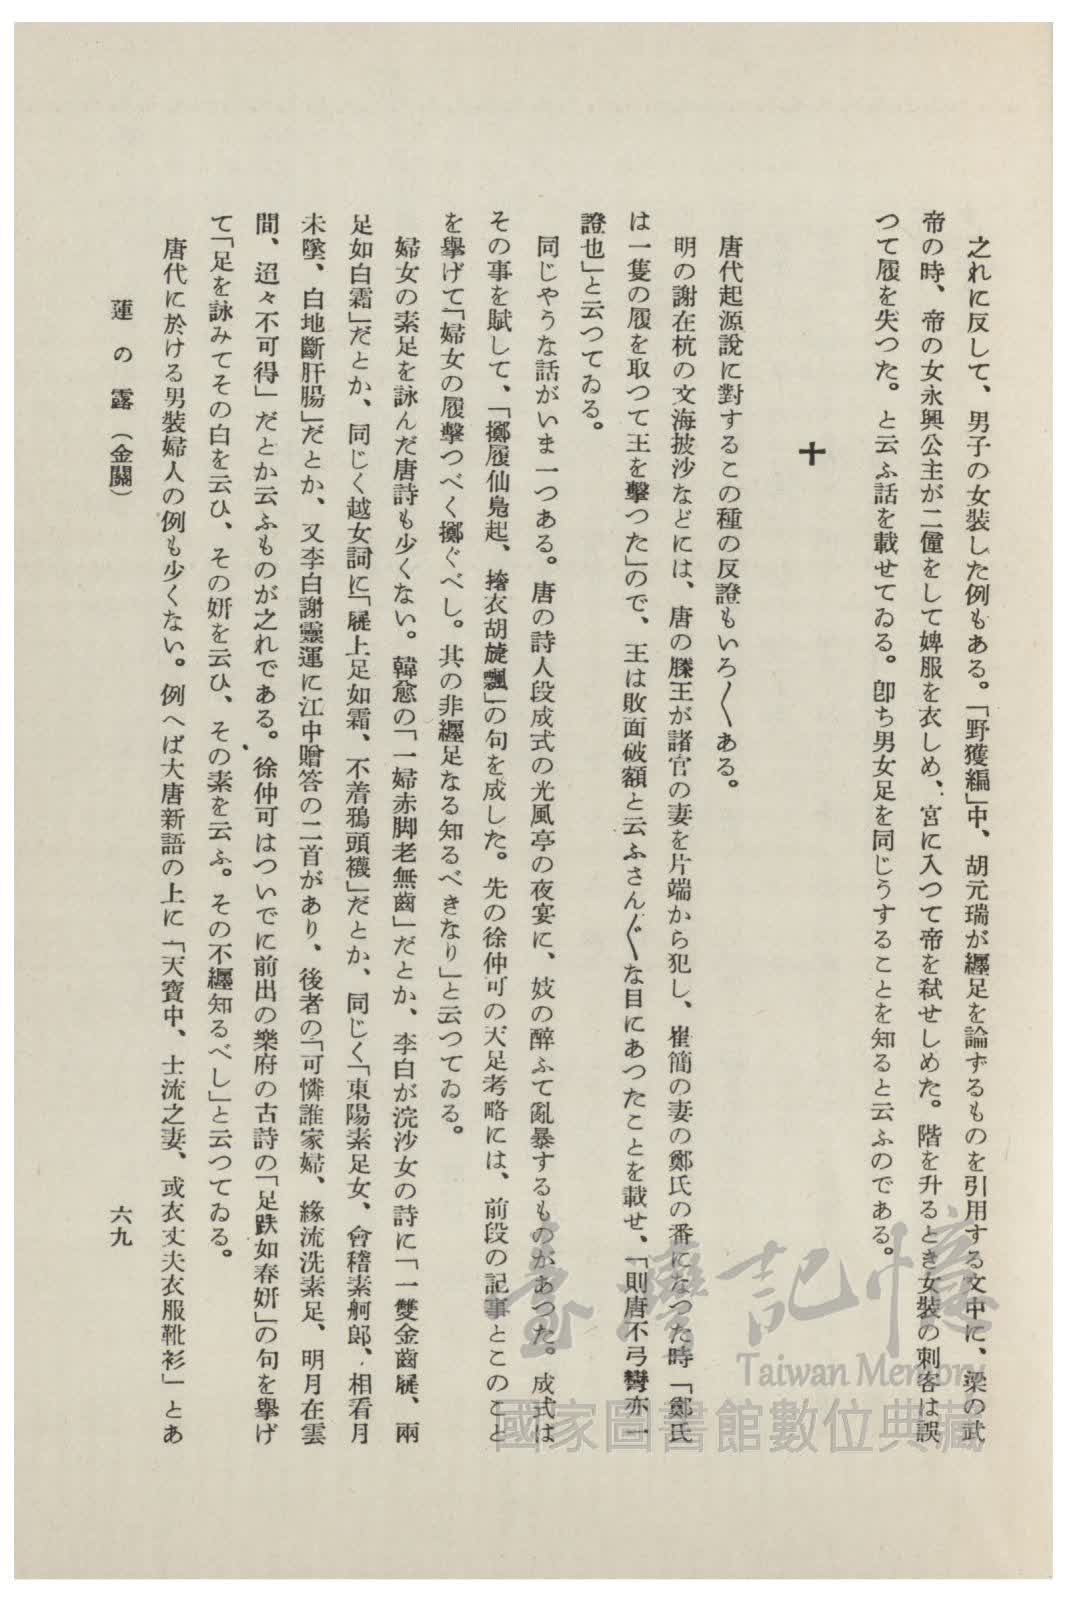 之れに反して、男子の女裝した例もある。「野獲編」中、胡元瑞が纒足を論ずるものを引用する文中に、梁の武
帝の時、帝の女永興公主が二僮をして婢服を衣しめ、宮に入つて帝を弑せしめた。階を升るとき女裝の刺客は誤
つて履を失つた。と云ふ話を載せてゐる。卽ち男女足を同じうすることを知ると云ふのである。
十
唐代起源說に對するこの種の反證もいろ〱ある。
明の謝在杭の文海披沙などには、唐の滕王が諸官の妻を片端から犯し、崔簡の妻の鄭氏の番になつた時「鄭氏
は一隻の履を取つて王を擊つた」ので、王は敗面破額と云ふさん〲な目にあつたことを載せ、「則唐不弓彎亦一
證也」と云つてゐる。
同じやうな話がいま一つある。唐の詩人段成式の光風亭の夜宴に、妓の醉ふて亂暴するものがあつた。成式は
その事を賦して、「擲履仙鳧起、撦衣胡旋飄」の句を成した。先の徐仲可の天足考略には、前段の記事とこのこと
を擧げて「婦女の履擊つべく擲ぐべし。其の非纒足なる知るべきなり」と云つてゐる。
婦女の素足を詠んだ唐詩も少くない。韓愈の「一婦赤脚老無齒」だとか、李白が浣沙女の詩に「一雙金齒屣、兩
足如白霜」だとか、同じく越女詞に「屣上足如霜、不着鴉頭襪」だとか、同じく「東陽素足女、會稽素舸郎、相看月
未墜、白地斷肝腸」だとか、又李白謝靈運に江中贈答の二首があり、後者の「可憐誰家婦、緣流洗素足、明月在雲
間、迢々不可得」だとか云ふものが之れである。徐仲可はついでに前出の樂府の古詩の「足趺如春妍」の句を擧げ
て「足を詠みてその白を云ひ、その妍を云ひ、その素を云ふ。その不纒知るべし」と云つてゐる。
唐代に於ける男裝婦人の例も少くない。例へば大唐新語の上に「天寶中、士流之妻、或衣丈夫衣服靴衫」とあ
蓮の露（金關）
六九
臺灣記憶
Taiwan Memory
國家圖書館數位典藏